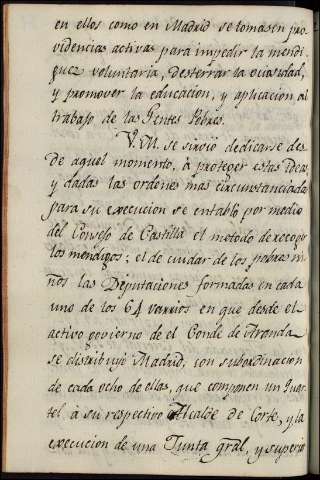 en ellos como en Madrid se tomasen pro
videncias activas para impedir la mendi
guez voluntaria, desterrar la ociosidad,
y promover la educacion, y aplicacion al
trabajo de las Gentes Pobres.
V. M. se sirvió dedicarse des
de aquel momento, à proteger estas ideas,
y dadas las ordenes mas circunstanciadas
para su execucion se entabló por medio
del Consejo de Castilla el metodo de recoger
los mendigos; el de cuidar de los pobres mis
mos las Diputaciones formadas en cada
uno de los 64 varrios en que desde el
activo govierno de el Conde de Aranda
se distribuyó Madrid, con subordinacion
de cada ocho de ellas, que componen un Quar
tel à su respectivo Alcalde de Corte, y la
execucion de una Junta gral, y superior